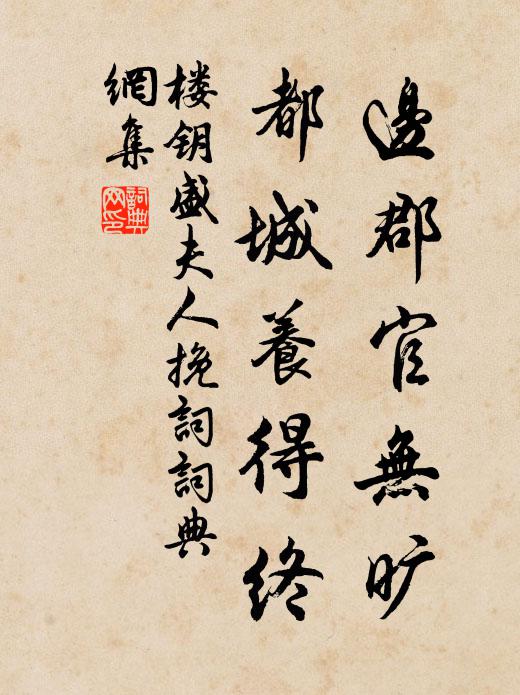 邊郡官無旷
都城養得終
楼钥盛夫人挽詞詞典
網集
詞典
网印